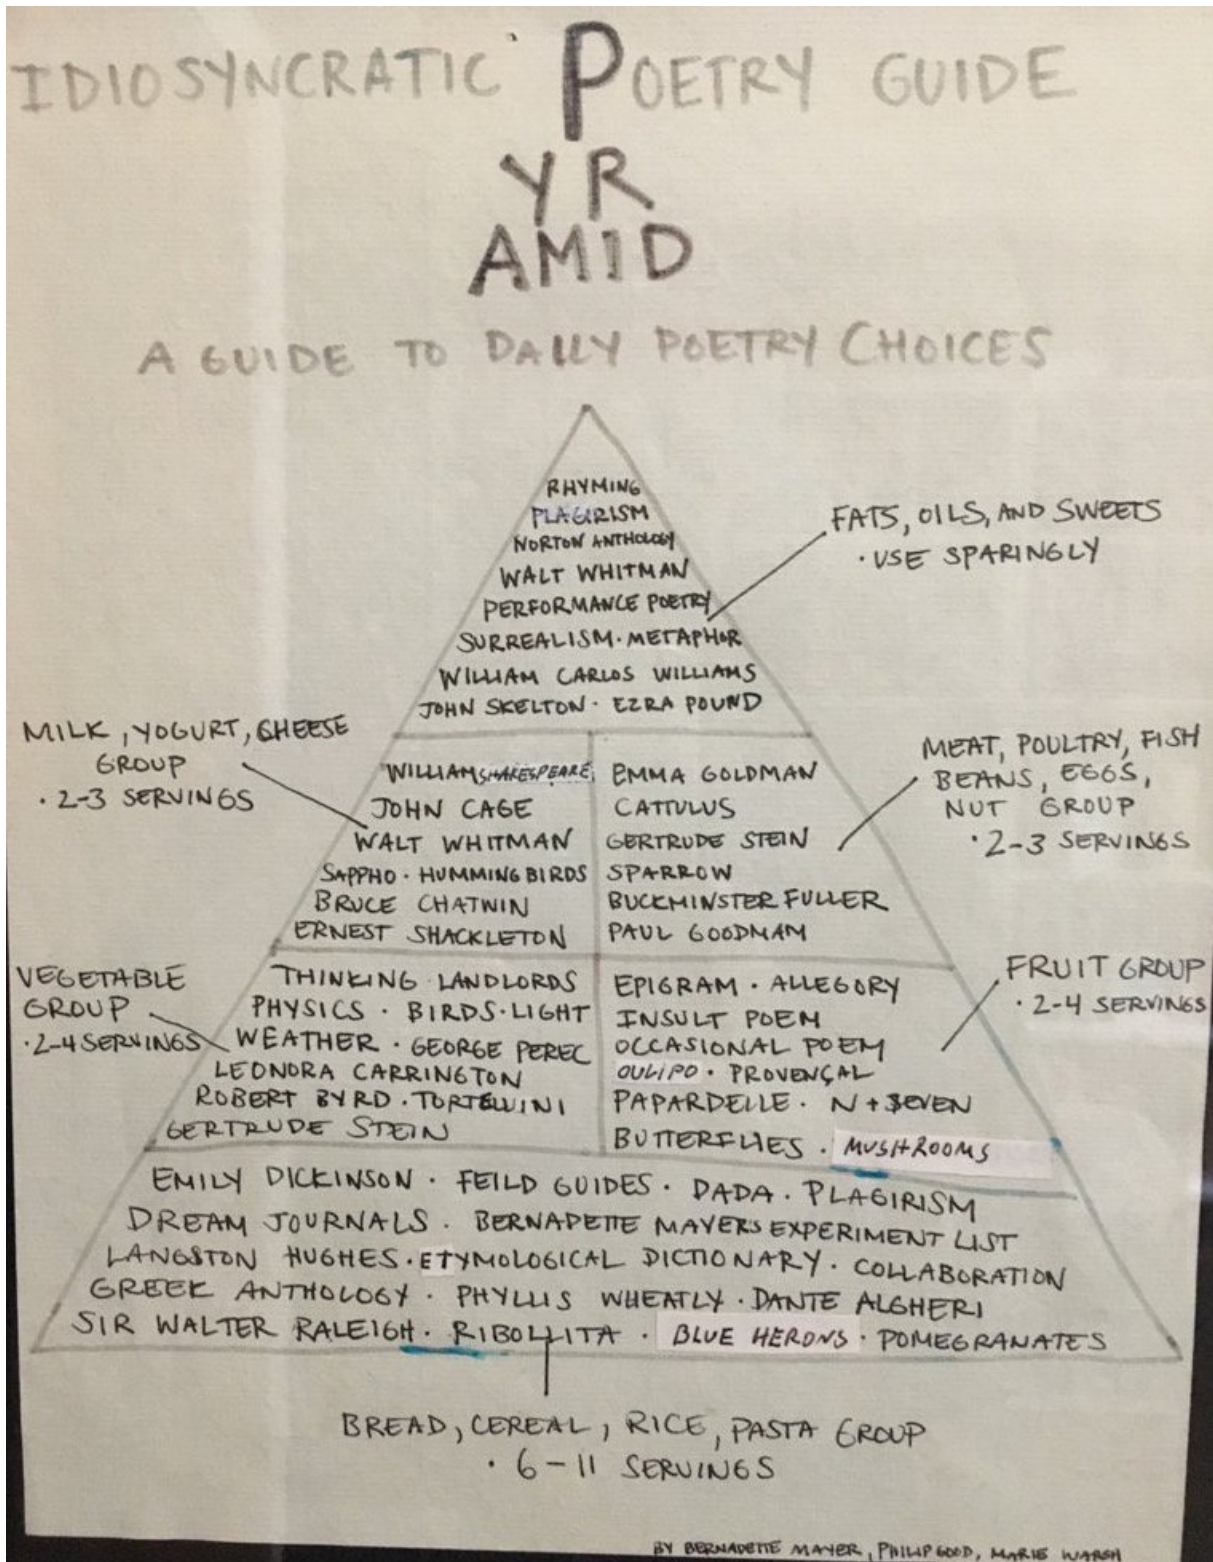 IDIOSYNCRATIC POETRY GUIDE
YR
AMID
A GUIDE TO DAILY POETRY CHOICES
RHYMING
PLAGIRISM
NORTON ANTHOLOGY
WALT WHITMAN
PERFORMANCE POETRY
SURREALISM · METAPHOR
WILLIAM CARLOS WILLIAMS
JOHN SKELTON · EZRA POUND
FATS, OILS, AND SWEETS
· USE SPARINGLY
MILK, YOGURT, CHEESE
GROUP
· 2-3 SERVINGS
WILLIAM SHAKESPEARE
JOHN CAGE
WALT WHITMAN
SAPPHO · HUMMINGBIRDS
BRUCE CHATWIN
ERNEST SHACKLETON
EMMA GOLDMAN
CATTULUS
GERTRUDE STEIN
SPARROW
BUCKMINSTER FULLER
PAUL GOODMAM
MEAT, POULTRY, FISH
BEANS, EGGS,
NUT GROUP
· 2-3 SERVINGS
VEGETABLE
GROUP
· 2-4 SERVINGS
THINKING · LANDLORDS
PHYSICS · BIRDS · LIGHT
WEATHER · GEORGE PEREC
LEONORA CARRINGTON
ROBERT BYRD · TORTELLINI
GERTRUDE STEIN
EPIGRAM · ALLEGORY
INSULT POEM
OCCASIONAL POEM
OULIPO · PROVENÇAL
PAPARDELLE · N + SEVEN
BUTTERFLIES · MUSHROOMS
FRUIT GROUP
· 2-4 SERVINGS
EMILY DICKINSON · FEILD GUIDES · DADA · PLAGIRISM
DREAM JOURNALS · BERNADETTE MAYERS EXPERIMENT LIST
LANGSTON HUGHES · ETYMOLOGICAL DICTIONARY · COLLABORATION
GREEK ANTHOLOGY · PHYLLIS WHEATLY · DANTE ALGHERI
SIR WALTER RALEIGH · RIBOLLITA · BLUE HERONS · POMEGRANATES
BREAD, CEREAL, RICE, PASTA GROUP
· 6-11 SERVINGS
BY BERNADETTE MAYER, PHILIP GOOD, MARIE WARSH